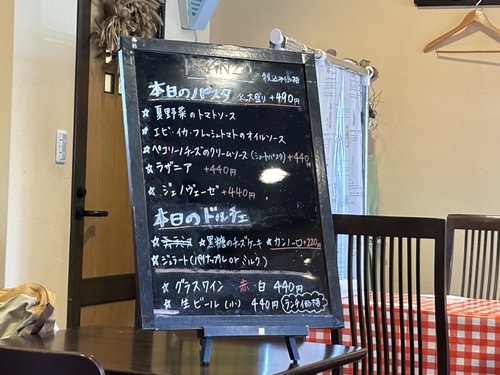 PRANZO
税込み価格
本日のパスタ ※大盛り +490円
☆ 夏野菜のトマトソース
☆ エビ・イカ・フレッシュトマトのオイルソース
☆ ペコリーノチーズのクリームソース (ショートパスタ) +440円
☆ ラザニア +440円
☆ ジェノヴェーゼ +440円
本日のドルチェ
☆ 黒糖のチーズケーキ ☆ カンノーロ +220円
☆ ジェラート (パイナップル or ミルク)
☆ グラスワイン 赤・白 440円
☆ 生ビール (小) 440円 ランチ価格